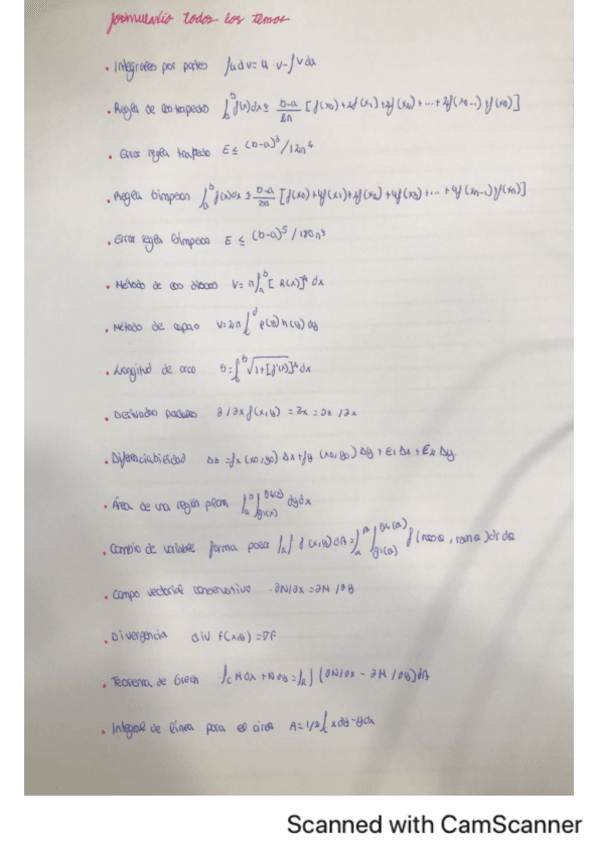 formulario todos los temas
• Integrales por partes ∫u dv = u · v - ∫v du
• Regla de los trapecios ∫_a^b f(x)dx ≈ b-a/2n [f(x0)+2f(x1)+2f(x2)+...+2f(xn-1)+f(xn)]
• Error regla trapecio E ≤ (b-a)³/12n²
• Regla Simpson ∫_a^b f(x)dx ≈ b-a/3n [f(x0)+4f(x1)+2f(x2)+4f(x3)+...+4f(xn-1)+f(xn)]
• Error regla Simpson E ≤ (b-a)⁵/180n⁴
• Método de los discos V = π∫_a^b [R(x)]² dx
• Método de capas V = 2π∫_c^d p(y)h(y) dy
• Longitud de arco s = ∫_a^b √1+[f'(x)]² dx
• Derivadas parciales ∂/∂x f(x,y) = Zx = ∂z/∂x
• Diferenciabilidad Δz = fx(x0,y0) Δx + fy(x0,y0) Δy + ε1 Δx + ε2 Δy
• Área de una región plana ∫_a^b ∫_g1(x)^g2(x) dy dx
• Cambio de variable forma polar ∫_R∫ f(x,y) dA = ∫_α^β ∫_g1(θ)^g2(θ) f(r cos θ, r sen θ) dr dθ
• Campo vectorial conservativo ∂N/∂x = ∂M/∂y
• Divergencia div F(x,y) = ∇F
• Teorema de Green ∫_C M dx + N dy = ∫_R∫ (∂N/∂x - ∂M/∂y) dA
• Integral de línea para el área A = 1/2 ∫_C x dy - y dx
Scanned with CamScanner